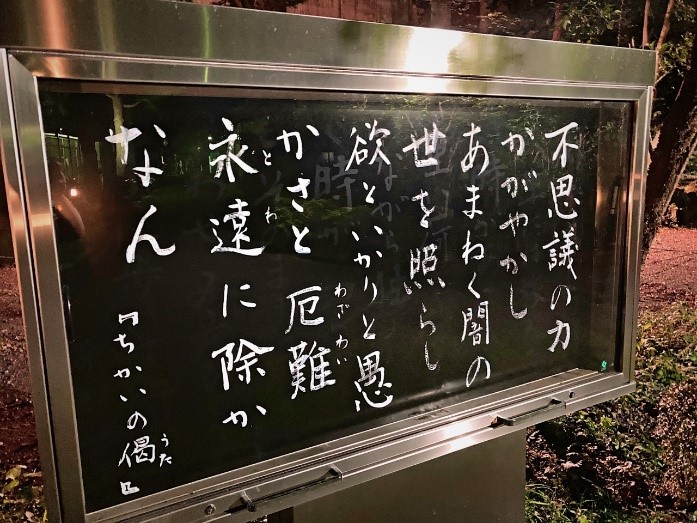 不思議の力
かがやかし
あまねく闇の
世を照らし
欲といかりと愚
かさと 厄難
わざわい
永遠に除か
とわ
なん
『ちかいの偈』
うた